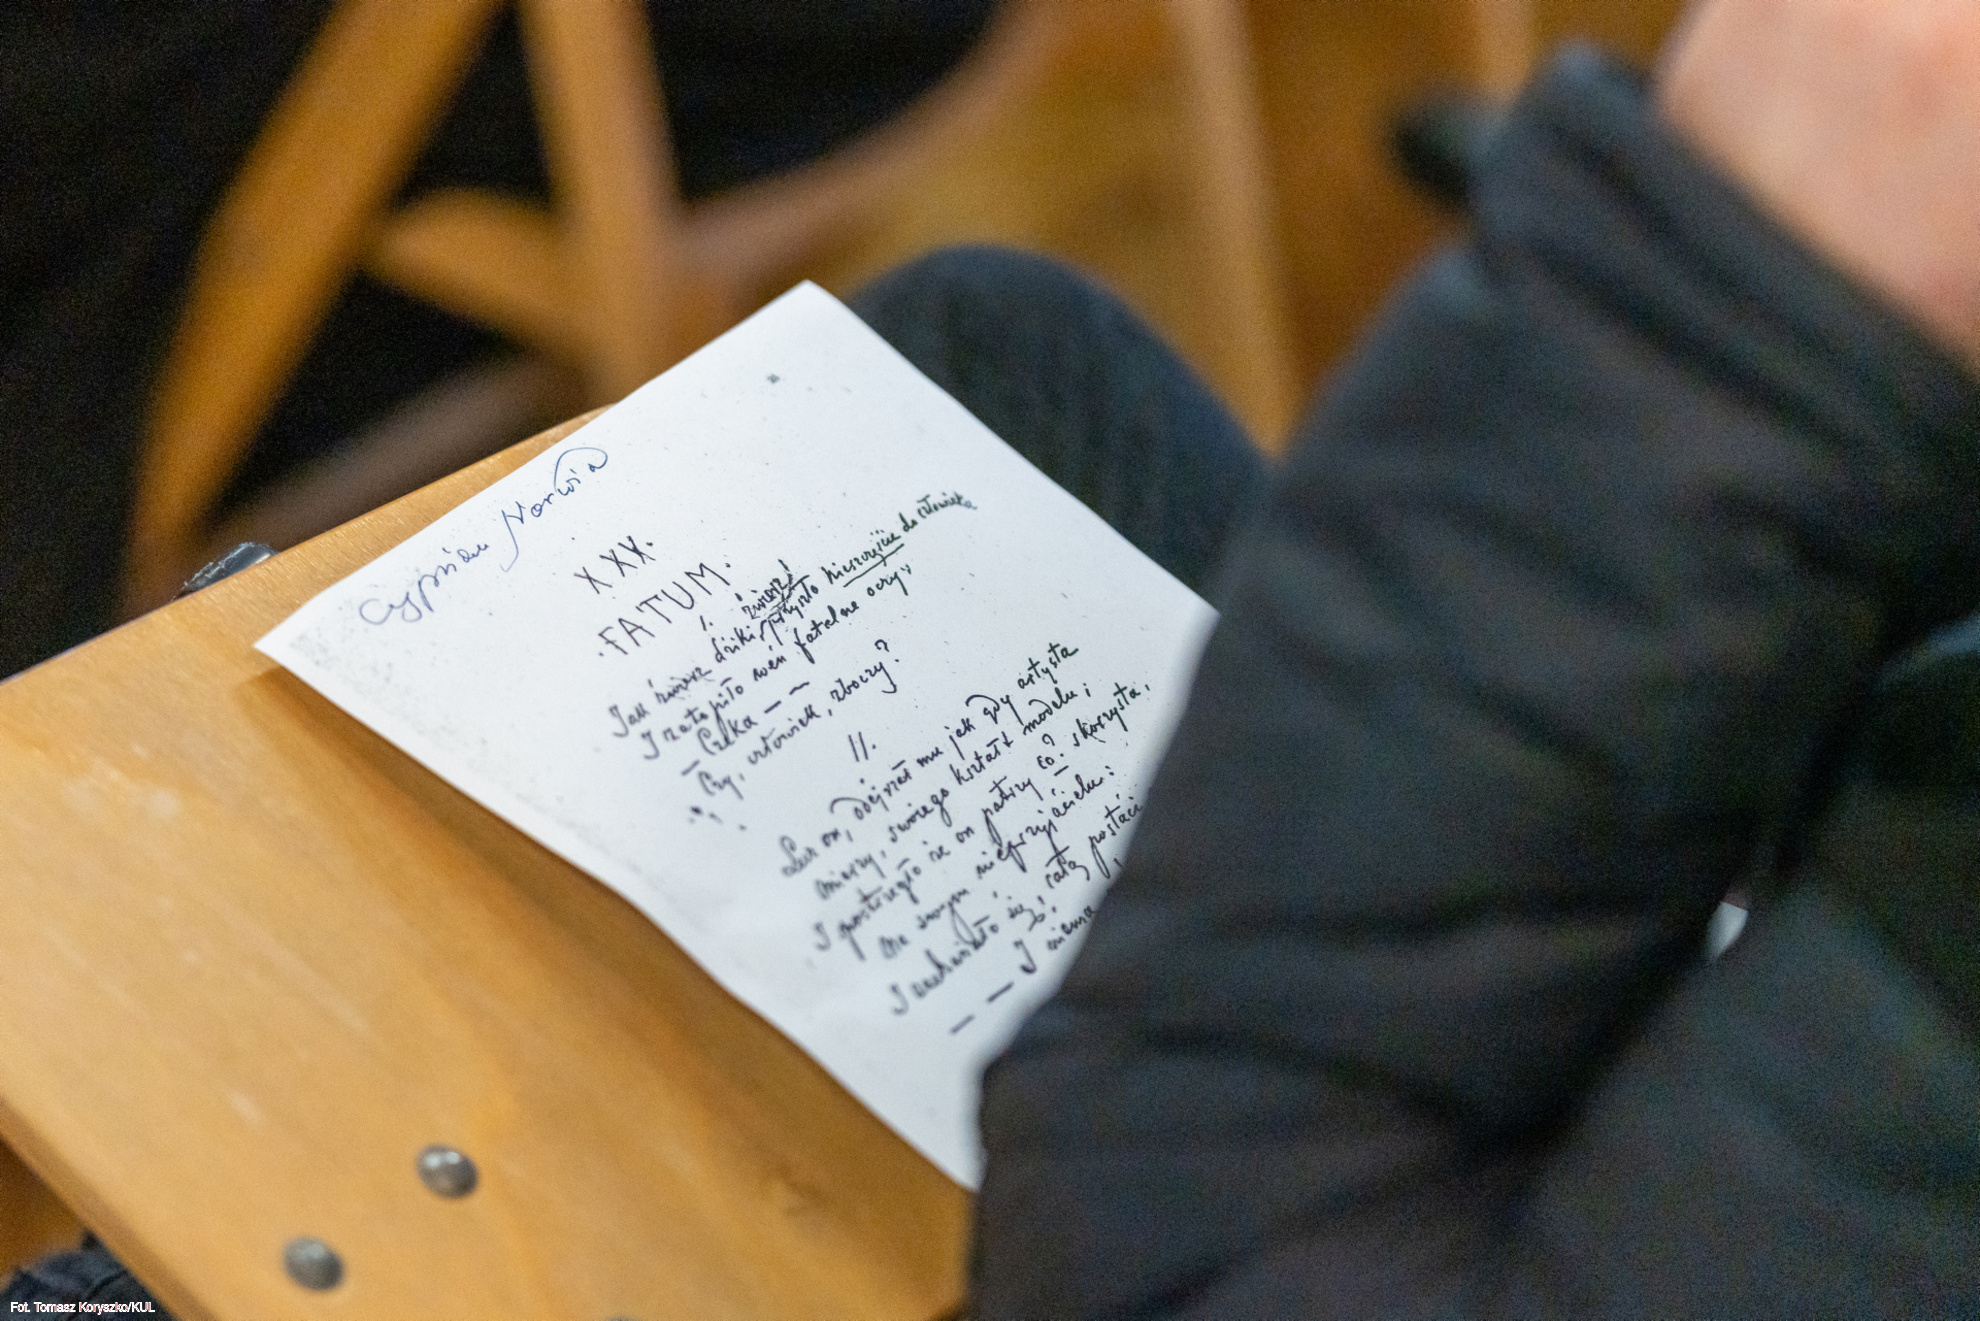 Cyprian Norwid
XXX.
FATUM.
I.
źwierz!
Jak dziki, przyszło nieszczęście do człowieka
I zatopiło weń fatalne oczy;
— Czeka — —
Czy, człowiek, zboczy?
II.
Lecz on, odejrzał mu jak gdy artysta
Mierzy, swojego kształt modelu;
I spostrzegło że on patrzy co? skorzysta,
Na swym nieprzyjacielu:
I zachwiało się całą postaci
— — I niema
Fot. Tomasz Koryszko/KUL